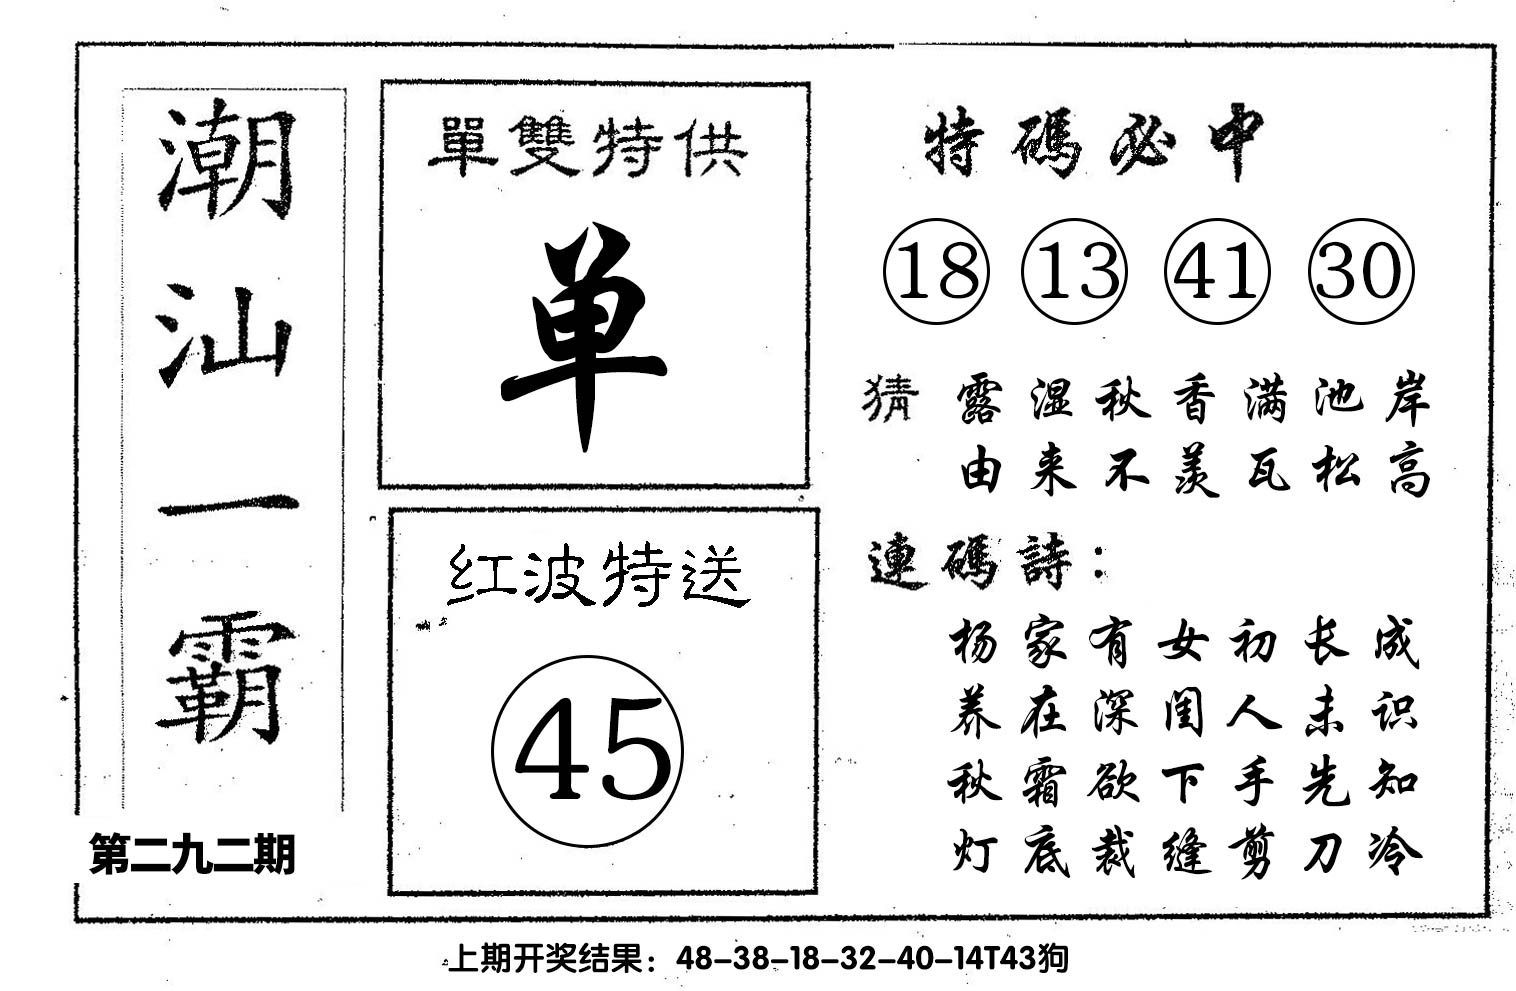 潮汕一霸
第二九二期
單雙特供
单
红波特送
45
特碼必中
18 13 41 30
猜 露湿秋香满池岸
由来不羡瓦松高
連碼詩：
杨家有女初长成
养在深闺人未识
秋霜欲下手先知
灯底裁缝剪刀冷
上期开奖结果：48-38-18-32-40-14T43狗